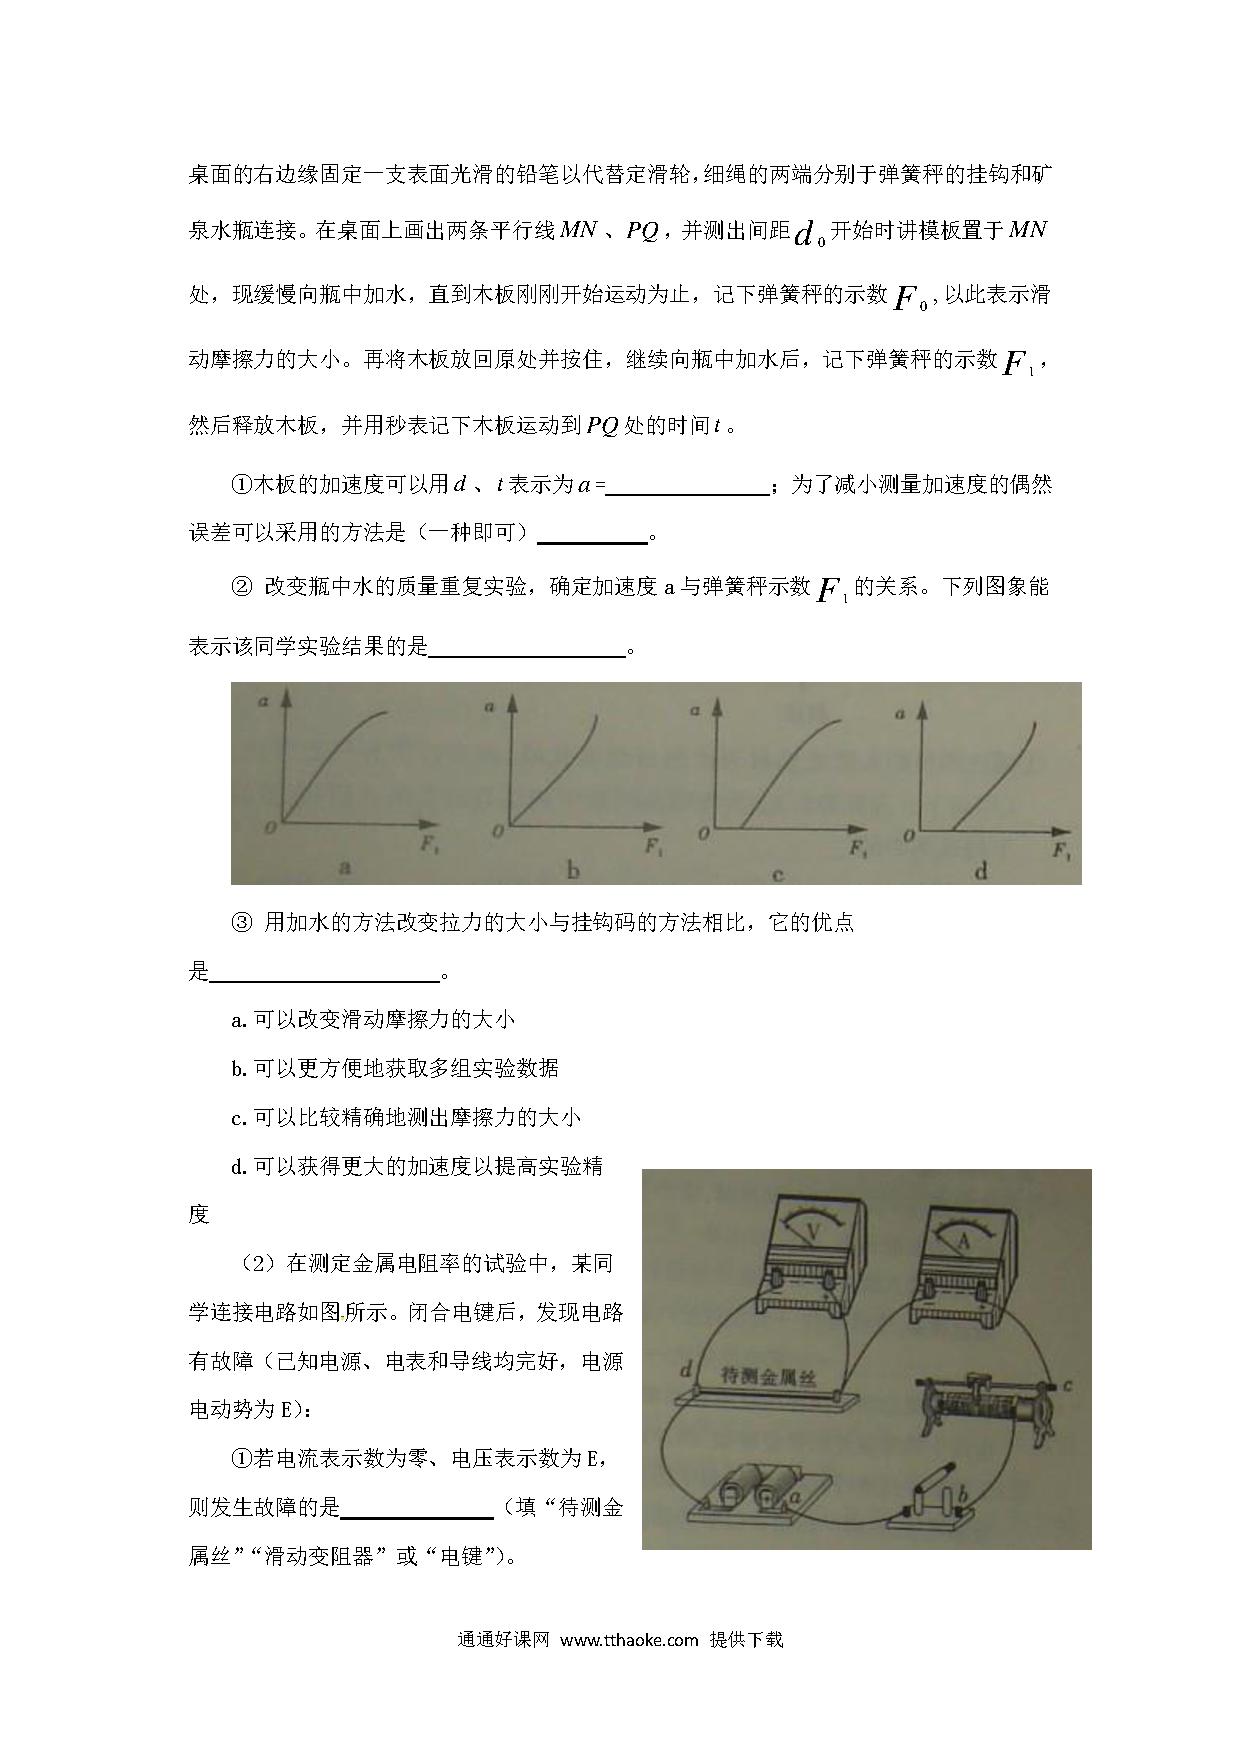 桌面的右边缘固定一支表面光滑的铅笔以代替定滑轮,细绳的两端分别于弹簧秤的挂钩和矿
泉水瓶连接。在桌面上画出两条平行线MN、PQ，并测出间距d₀开始时讲模板置于MN
处，现缓慢向瓶中加水，直到木板刚刚开始运动为止，记下弹簧秤的示数F₀,以此表示滑
动摩擦力的大小。再将木板放回原处并按住，继续向瓶中加水后，记下弹簧秤的示数F₁，
然后释放木板，并用秒表记下木板运动到PQ处的时间t。
①木板的加速度可以用d、t表示为a=；为了减小测量加速度的偶然
误差可以采用的方法是（一种即可）。
② 改变瓶中水的质量重复实验，确定加速度a与弹簧秤示数F₁的关系。下列图象能
表示该同学实验结果的是。
a a a a
O F₁ O F₁ O F₁ O F₁
a b c d
③ 用加水的方法改变拉力的大小与挂钩码的方法相比，它的优点
是。
a.可以改变滑动摩擦力的大小
b.可以更方便地获取多组实验数据
c.可以比较精确地测出摩擦力的大小
d.可以获得更大的加速度以提高实验精
度
（2）在测定金属电阻率的试验中，某同
学连接电路如图所示。闭合电键后，发现电路
有故障（已知电源、电表和导线均完好，电源
电动势为E）：
①若电流表示数为零、电压表示数为E，
则发生故障的是（填“待测金
属丝”“滑动变阻器”或“电键”）。
V A
d 待测金属丝 c
a b
通通好课网 www.tthaoke.com 提供下载